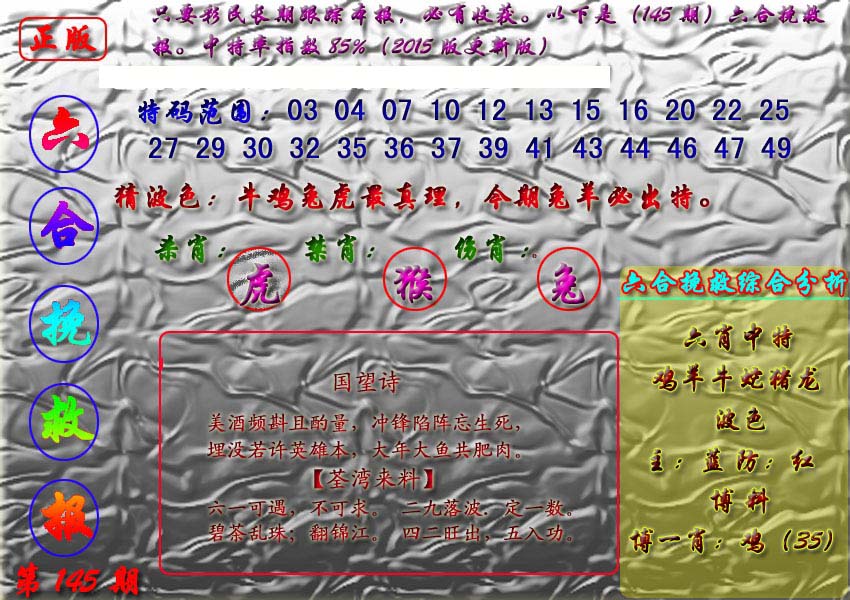 只要彩民长期跟踪本报，必有收获。以下是（145期）六合挽救
报。中特率指数85%（2015版更新版）
正版
特码范围：03 04 07 10 12 13 15 16 20 22 25
27 29 30 32 35 36 37 39 41 43 44 46 47 49
猜波色：牛鸡兔虎最真理，今期兔羊必出特。
杀肖：虎 禁肖：猴 伤肖：兔
六合挽救报
第145期
国望诗
美酒频斟且酌量，冲锋陷阵忘生死，
埋没若许英雄本，大年大鱼共肥肉。
【荃湾来料】
六一可遇，不可求。 二九落波．定一数。
碧茶乱珠；翻锦江。 四二旺出，五入功。
六合挽救综合分析
六肖中特
鸡羊牛蛇猪龙
波色
主：蓝防：红
博料
博一肖：鸡（35）